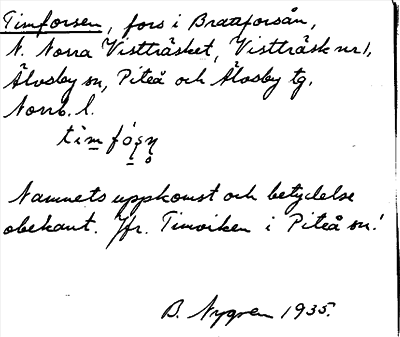 Timforsen, fors i Brattforsån,
N. Norra Vistträsket, Vistträsk nr 1,
Älvsby sn, Piteå och Älvsby tg,
Norrb. l.
Namnets uppkomst och betydelse
obekant. Jfr. Timviken i Piteå sn!
B. Nygren 1935.